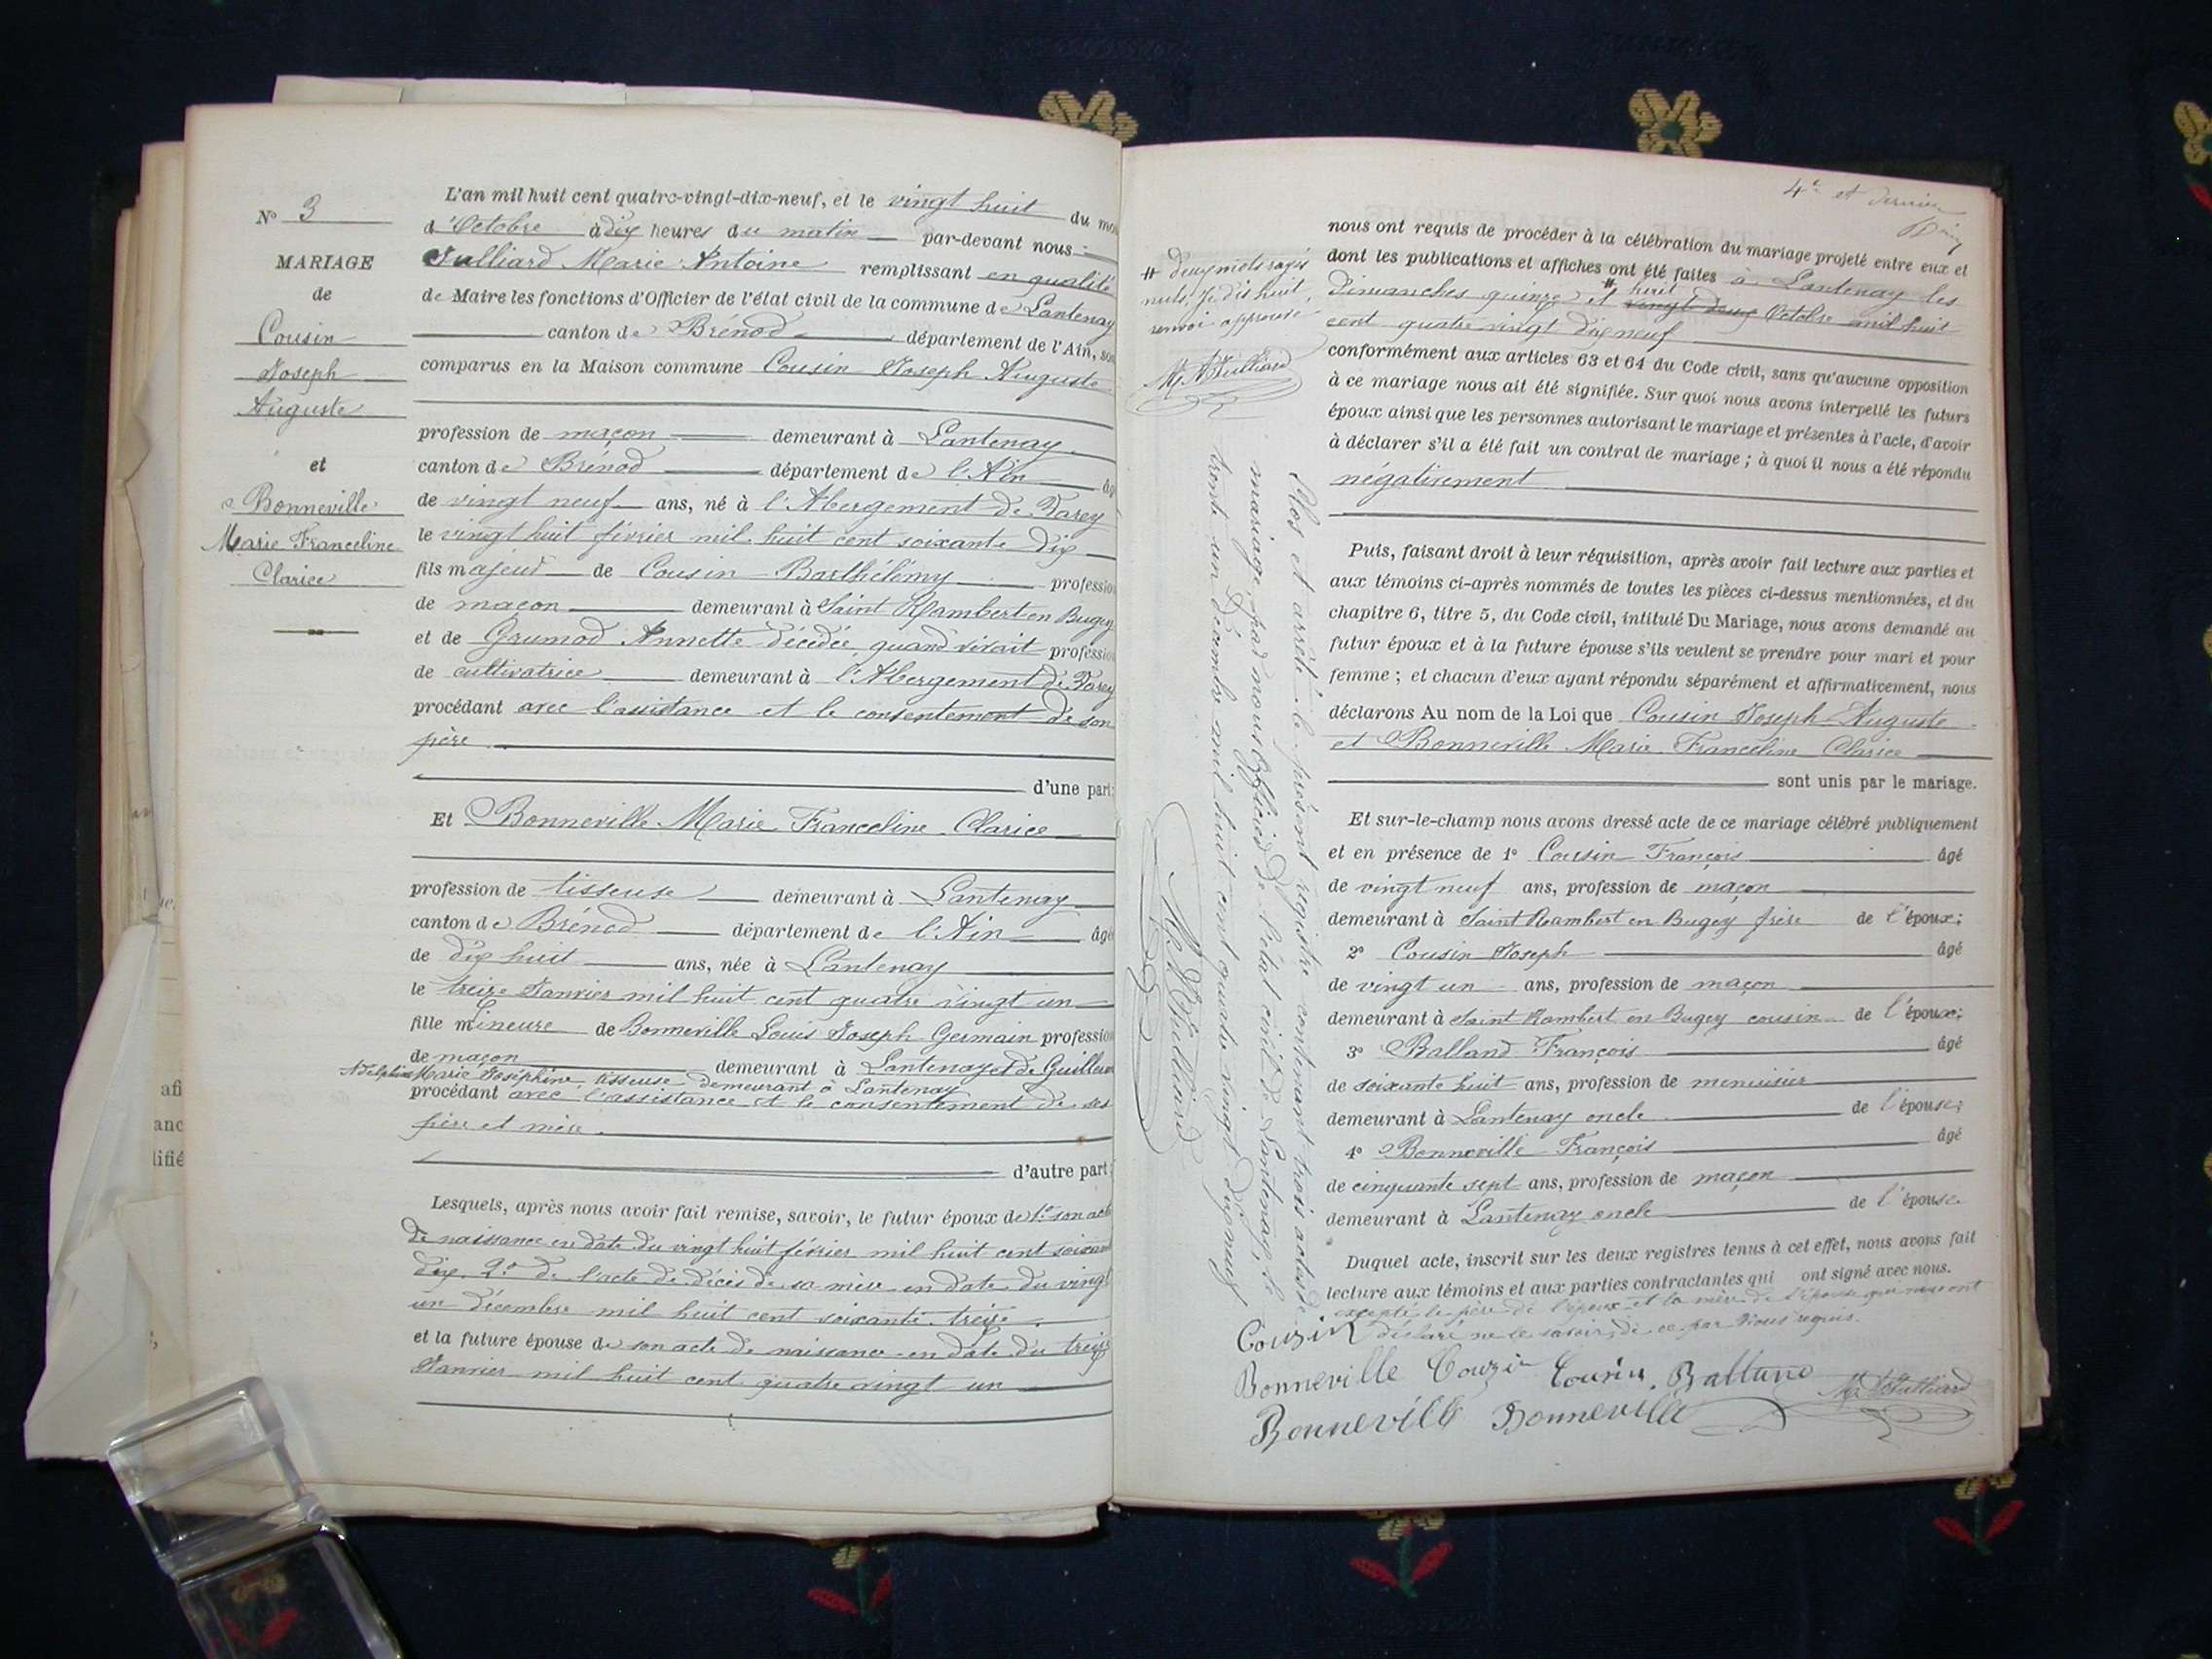 N° 3
MARIAGE
de
Cousin
Joseph
Auguste
et
Bonneville
Marie Franceline
Clarice
L'an mil huit cent quatre-vingt-dix-neuf, et le vingt huit du mo
d'Octobre à dix heures du matin par-devant nous
Julliard Marie Antoine remplissant en qualité
de Maire les fonctions d'Officier de l'état civil de la commune de Lantenay
canton de Brénod département de l'Ain, son
comparus en la Maison commune Cousin Joseph Auguste
profession de maçon demeurant à Lantenay
canton de Brénod département de l'Ain âg
de vingt neuf ans, né à l'Abergement de Varey
le vingt huit février mil huit cent soixante dix
fils majeur de Cousin Barthélémy profession
de maçon demeurant à Saint Rambert en Bugey
et de Grumod Annette décédée, quand vivait profession
de cultivatrice demeurant à l'Abergement de Varey
procédant avec l'assistance et le consentement de son
père
d'une part;
Et Bonneville Marie Franceline Clarice
profession de tisseuse demeurant à Lantenay
canton de Brénod département de l'Ain âgé
de dix huit ans, née à Lantenay
le treize Janvier mil huit cent quatre vingt un
fille mineure de Bonneville Louis Joseph Germain profession
de maçon demeurant à Lantenay et de
Adelphine Marie Joséphine, tisseuse demeurant à Lantenay
procédant avec l'assistance et le consentement de ses
père et mère.
d'autre part;
Lesquels, après nous avoir fait remise, savoir, le futur époux de 1° son acte
de naissance en date du vingt huit février mil huit cent soixante
dix 2° de l'acte de décès de sa mère en date du vingt
un décembre mil huit cent soixante treize.
et la future épouse de son acte de naissance en date du treize
Janvier mil huit cent quatre vingt un
4e et dernier
nous ont requis de procéder à la célébration du mariage projeté entre eux et
dont les publications et affiches ont été faites à Lantenay les
# huit
Dimanches quinze et vingt deux Octobre mil huit
cent quatre vingt dix neuf
conformément aux articles 63 et 64 du Code civil, sans qu'aucune opposition
à ce mariage nous ait été signifiée. Sur quoi nous avons interpellé les futurs
époux ainsi que les personnes autorisant le mariage et présentes à l'acte, d'avoir
à déclarer s'il a été fait un contrat de mariage ; à quoi il nous a été répondu
négativement
Puis, faisant droit à leur réquisition, après avoir fait lecture aux parties et
aux témoins ci-après nommés de toutes les pièces ci-dessus mentionnées, et du
chapitre 6, titre 5, du Code civil, intitulé Du Mariage, nous avons demandé au
futur époux et à la future épouse s'ils veulent se prendre pour mari et pour
femme ; et chacun d'eux ayant répondu séparément et affirmativement, nous
déclarons Au nom de la Loi que Cousin Joseph Auguste
et Bonneville Marie Franceline Clarice
sont unis par le mariage.
Et sur-le-champ nous avons dressé acte de ce mariage célébré publiquement
et en présence de 1° Cousin François âgé
de vingt neuf ans, profession de maçon
demeurant à Saint Rambert en Bugey frère de l'époux;
2° Cousin Joseph âgé
de vingt un ans, profession de maçon
demeurant à Saint Rambert en Bugey cousin de l'époux;
3° Balland François âgé
de soixante huit ans, profession de menuisier
demeurant à Lantenay oncle de l'épouse;
4° Bonneville François âgé
de cinquante sept ans, profession de maçon
demeurant à Lantenay oncle de l'épouse
Duquel acte, inscrit sur les deux registres tenus à cet effet, nous avons fait
lecture aux témoins et aux parties contractantes qui ont signé avec nous.
excepté le père de l'époux et la mère de l'épouse qui nous ont
déclaré ne le savoir, de ce par Nous requis.
Couzin
Bonneville Couzin Cousin Balland M A Julliard
Bonneville Bonneville
# deux mots rayés
nuls, je dis huit,
renvoi approuvé
M A Julliard
Clos et arrêté le présent registre contenant trois actes de
mariage par nous Officier de l'état civil de Lantenay, le
trente un Décembre mil huit cent quatre vingt dix neuf
M A Julliard